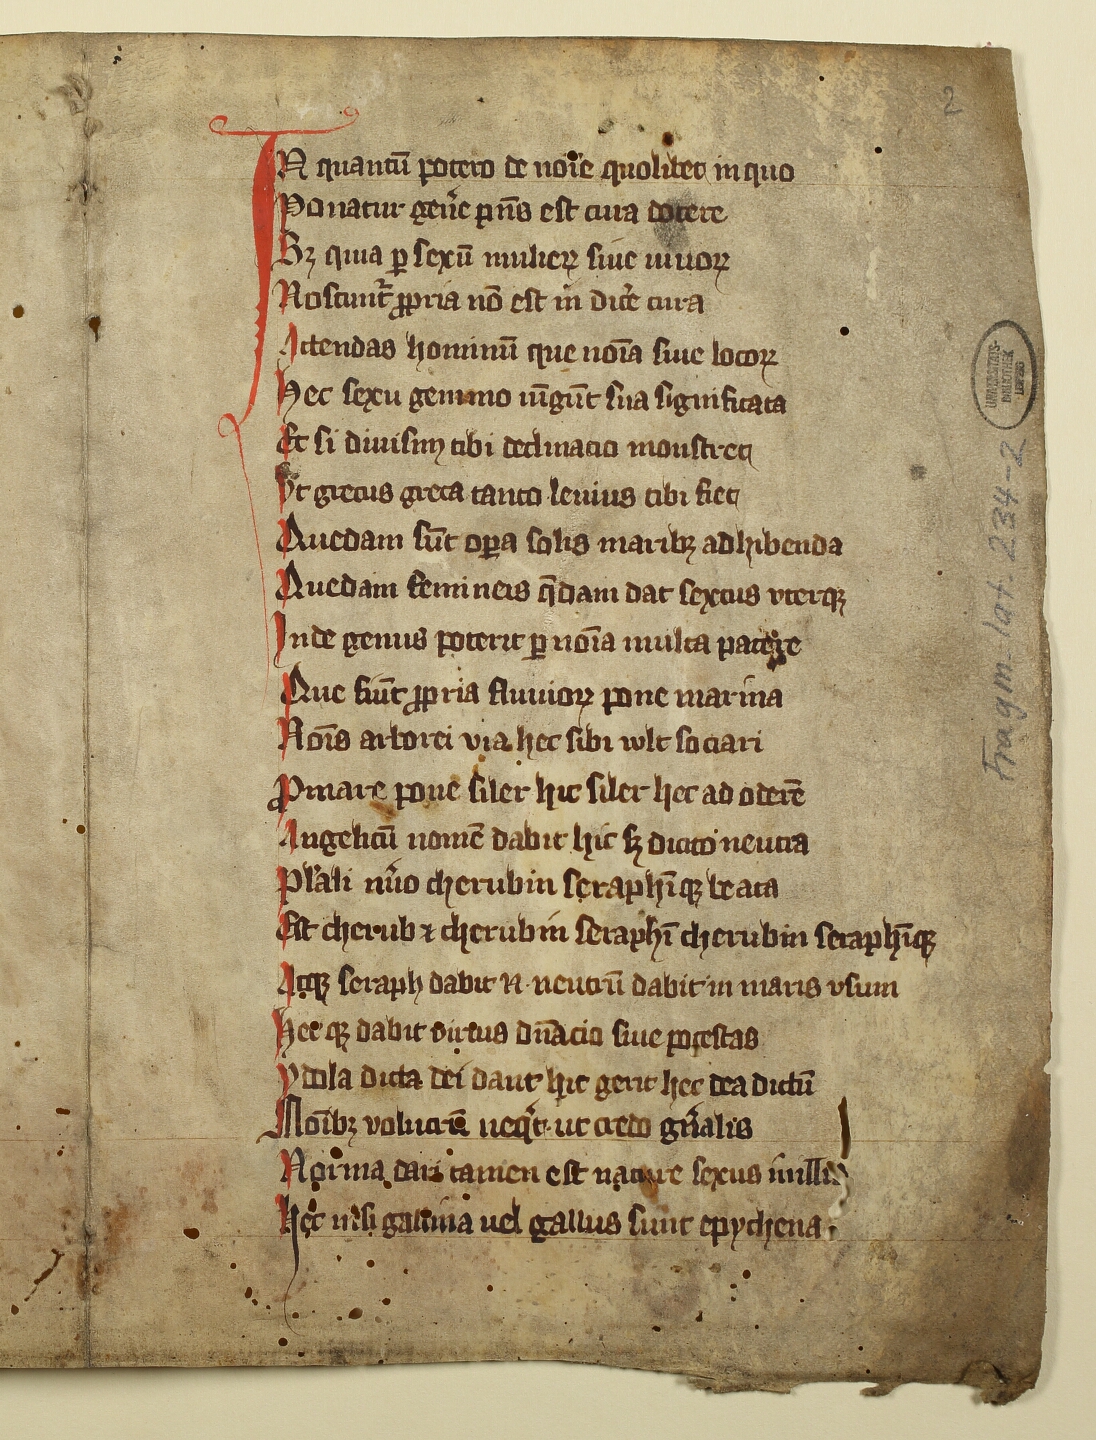 2
IN quantū potero de noīe quolibet in quo
Ponatur gen̄e p̄n̄s est cura docere
Sꝫ quia ꝑ sexū mulieꝝ siue uiuoꝝ
Noscunt̄ ꝓpria nō est in̄ dic̄e cura
Attendas hominū que noīa siue locoꝝ
Hec sexu gemino iūgūt sua significata
Et si diuisim tibi declinatio monstret
Vt grecus greca tanto leuius tibi fiet
Quedam sūt oꝑa solis maribꝫ adhibenda
Quedam femineis q̄dam dat sexus vterqꝫ
Inde genus poterit ꝑ noīa multa patere
Que fiūt ꝓpria fluuioꝝ pone marina
Noīs arborei via hec sibi wlt sociari
Pmare pone siler hic siler hec ad oderē
Angelicū nomē dabit hic sꝫ dicito neutra
Pl̄ali nūo cherubin seraphīqꝫ beata
Est cherub ⁊ cherubin seraphī cherubin seraphīqꝫ
Atqꝫ seraph dabit N neutrū dabit in maris vsum
Hec qꝫ dabit virtus dn̄acio siue potestas
Ydola dicta dei dant hic gerit hec dea dictū
Noībꝫ volucrū neq̄t ut credo gn̄alis
Norma dari tamen est nature sexus in illis
Hec nisi gallina uel gallus sunt epychena
UNIVERSITÄTS-
BIBLIOTHEK
LEIPZIG
Fragm. lat. 234-2